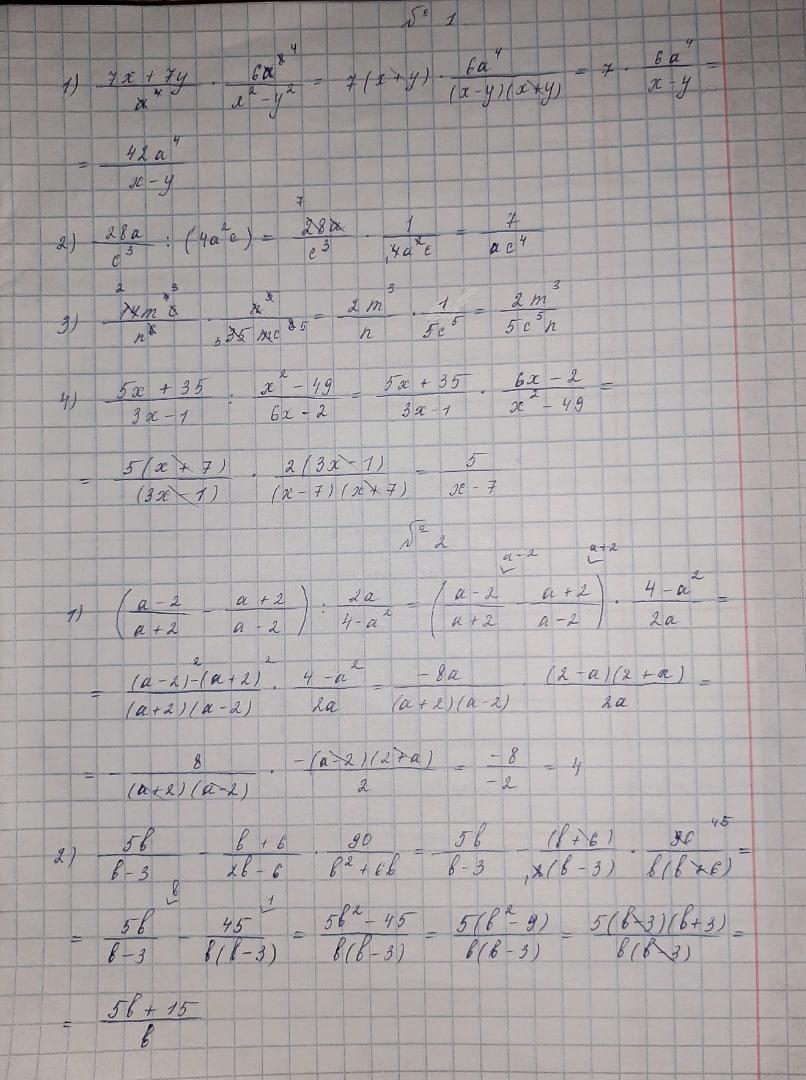 № 1
1) (7x + 7y)/a⁴ · 6a⁸/(x² − y²) = 7(x+y) · 6a⁴/((x−y)(x+y)) = 7 · 6a⁴/(x−y) =
= 42a⁴/(x−y)
2) 28a/c³ : (4a²c) = 28a/c³ · 1/(4a²c) = 7/(ac⁴)
3) · = 2m³/n · 1/(5c⁵) = 2m³/(5c⁵n)
4) (5x + 35)/(3x−1) : (x² − 49)/(6x − 2) = (5x + 35)/(3x−1) · (6x − 2)/(x² − 49) =
= 5(x+7)/(3x−1) · 2(3x−1)/((x−7)(x+7)) = 5/(x−7)
№ 2
1) ((a−2)/(a+2) − (a+2)/(a−2)) : 2a/(4−a²) = ((a−2)/(a+2) − (a+2)/(a−2)) · (4−a²)/2a =
= ((a−2)²−(a+2)²)/((a+2)(a−2)) · (4−a²)/2a = −8a/((a+2)(a−2)) · (2−a)(2+a)/2a =
= − 8/((a+2)(a−2)) · −(a−2)(2+a)/2 = −8/−2 = 4
2) 5b/(b−3) − (b+6)/(2b−6) · 90/(b²+6b) = 5b/(b−3) − (b+6)/(2(b−3)) · 90/(b(b+6)) =
= 5b/(b−3) − 45/(b(b−3)) = (5b²−45)/(b(b−3)) = 5(b²−9)/(b(b−3)) = 5(b−3)(b+3)/(b(b−3)) =
= (5b + 15)/b